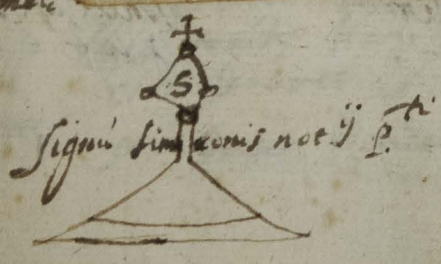 S
Signū Simeonis notij p.ti